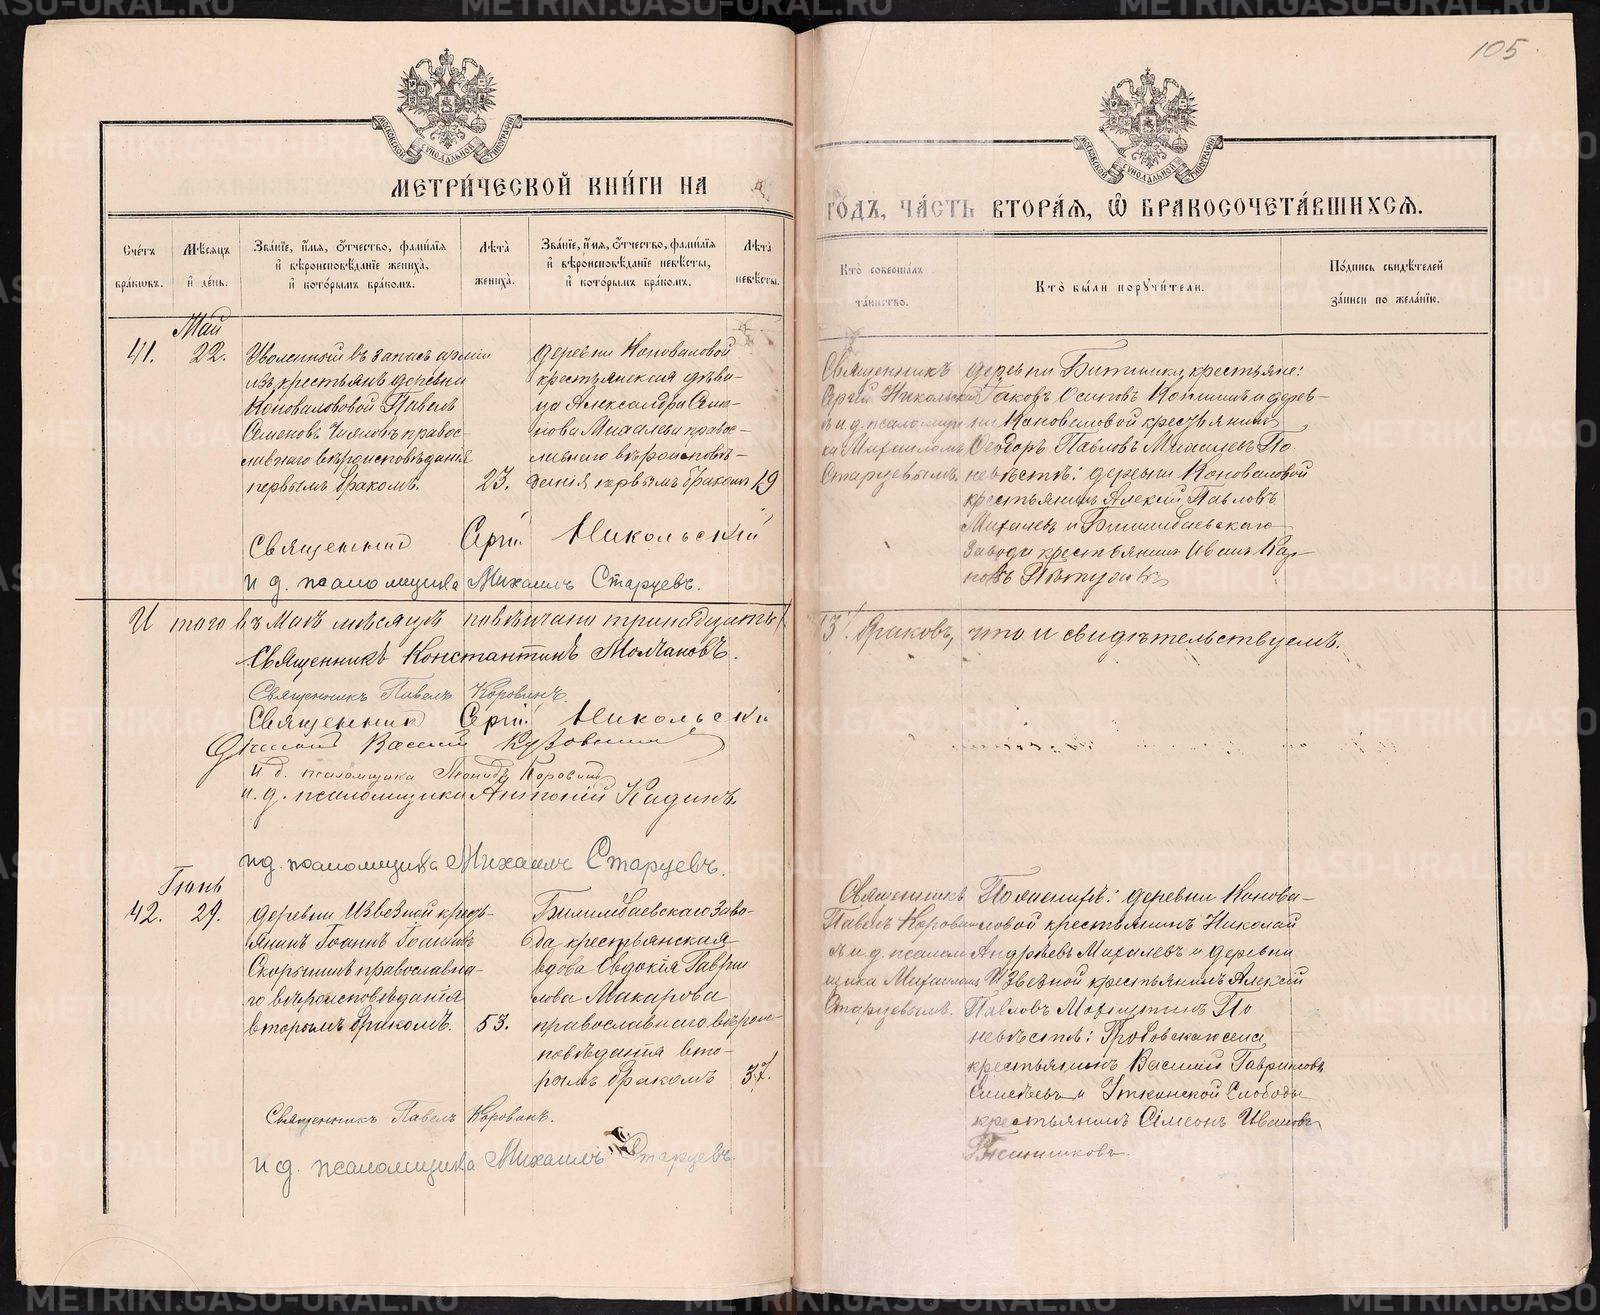 105
МОСКОВСКОЙ СѴНОДАЛЬНОЙ ТИПОГРАФІИ
МОСКОВСКОЙ СѴНОДАЛЬНОЙ ТИПОГРАФІИ
МЕТРИ́ЧЕСКОЙ КНИ́ГИ НА
ГО́ДЪ, ЧА́СТЬ ВТОРА́Я, Ѽ БРАКОСОЧЕТА́ВШИХСЯ.
Сче́тъ бра́ковъ.
Мѣ́сяцъ и де́нь.
Зва́нїе, и́мя, о́тчество, фами́лїя и вѣроисповѣ́данїе жениха̀, и кото́рымъ бра́комъ.
Лѣ́та жениха̀.
Зва́нїе, и́мя, о́тчество, фами́лїя и вѣроисповѣ́данїе невѣ́сты, и кото́рымъ бра́комъ.
Лѣ́та невѣ́сты.
Кто̀ соверша́лъ та́инство.
Кто̀ бы́ли поручи́тели.
По́дпись свидѣ́телей за́писи по жела́нїю.
Май
41.
22.
Уволенный въ запасъ арміи
изъ крестьянъ деревни
Коноваловой Павелъ
Семеновъ правос-
лавнаго вѣроисповѣданія
первымъ бракомъ.
23.
деревни Коноваловой
крестьянская дѣви-
ца Александра Семе-
нова Михалева правос-
лавнаго вѣроисповѣ-
данія первымъ бракомъ
19
Священникъ
Сергій Никольскій
и и.д. псаломщи
ка Михаиломъ
Старцевымъ.
деревни Битимки крестьяне:
Іаковъ Осиповъ и дерев-
ни Коноваловой крестьянинъ
Ѳеодоръ Павловъ Михалевъ По
невѣстѣ: деревни Коноваловой
крестьянинъ Алексій Павловъ
Михалевъ и Билимбаевскаго
завода крестьянинъ Иванъ
Священник Сергій Никольскій
и д. псаломщика Михаилъ Старцевъ.
Итого въ Маѣ мѣсяцѣ повѣнчано тринадцать /
13/ браковъ, что и свидѣтельствуемъ.
Священникъ Константинъ Молчановъ.
Священникъ Павелъ Коровинъ.
Священник Сергій Никольскій
Діаконъ Василій
и д. псаломщика Леонидъ Коровинъ
и. д. псаломщика Антоній Кадинъ.
и д. псаломщика Михаилъ Старцевъ.
Іюнь
42.
29.
деревни Извѣзной кресть-
янинъ Іоаннъ Іоанновъ
Скорынинъ православна-
го вѣроисповѣданія
вторымъ бракомъ.
53.
Билимбаевскаго заво-
да крестьянская
вдова Евдокія Гаври
лова Макарова
православнаго вѣроис-
повѣданія вто-
рымъ бракомъ
37.
Священникъ
Павелъ Коровинъ
и и.д. псалом
щика Михаиломъ
Старцевымъ.
По женихѣ: деревни Конова-
ловой крестьянинъ Николай
Андреевъ Михалевъ и деревни
Извѣзной крестьянинъ Алексій
Павловъ По
невѣстѣ: Гробовскаго села
крестьянинъ Василій Гавриловъ
и Уткинской Слободы
крестьянинъ Сімеонъ Ивановъ
Священникъ Павелъ Коровинъ.
и д. псаломщика Михаилъ Старцевъ.
METRIKI.GASO-URAL.RU